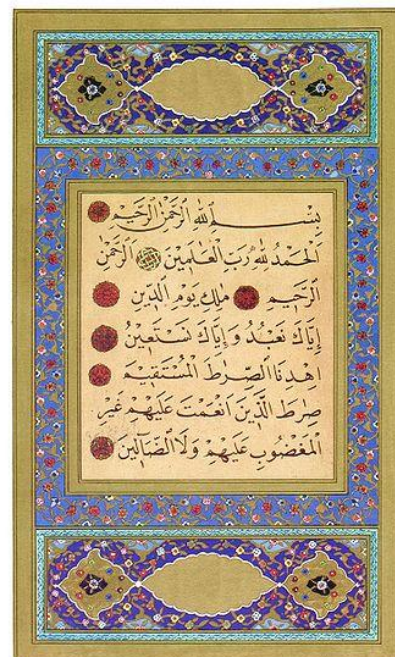 بِسْمِ اللهِ الرَّحْمٰنِ الرَّحِيمِ
اَلْحَمْدُ لِلهِ رَبِّ الْعَالَمِينَ الرَّحْمٰنِ
الرَّحِيمِ مَالِكِ يَوْمِ الدِّينِ
إِيَّاكَ نَعْبُدُ وَإِيَّاكَ نَسْتَعِينُ
اِهْدِنَا الصِّرَاطَ الْمُسْتَقِيمَ
صِرَاطَ الَّذِينَ اَنْعَمْتَ عَلَيْهِمْ غَيْرِ
الْمَغْضُوبِ عَلَيْهِمْ وَلَا الضَّالِّينَ